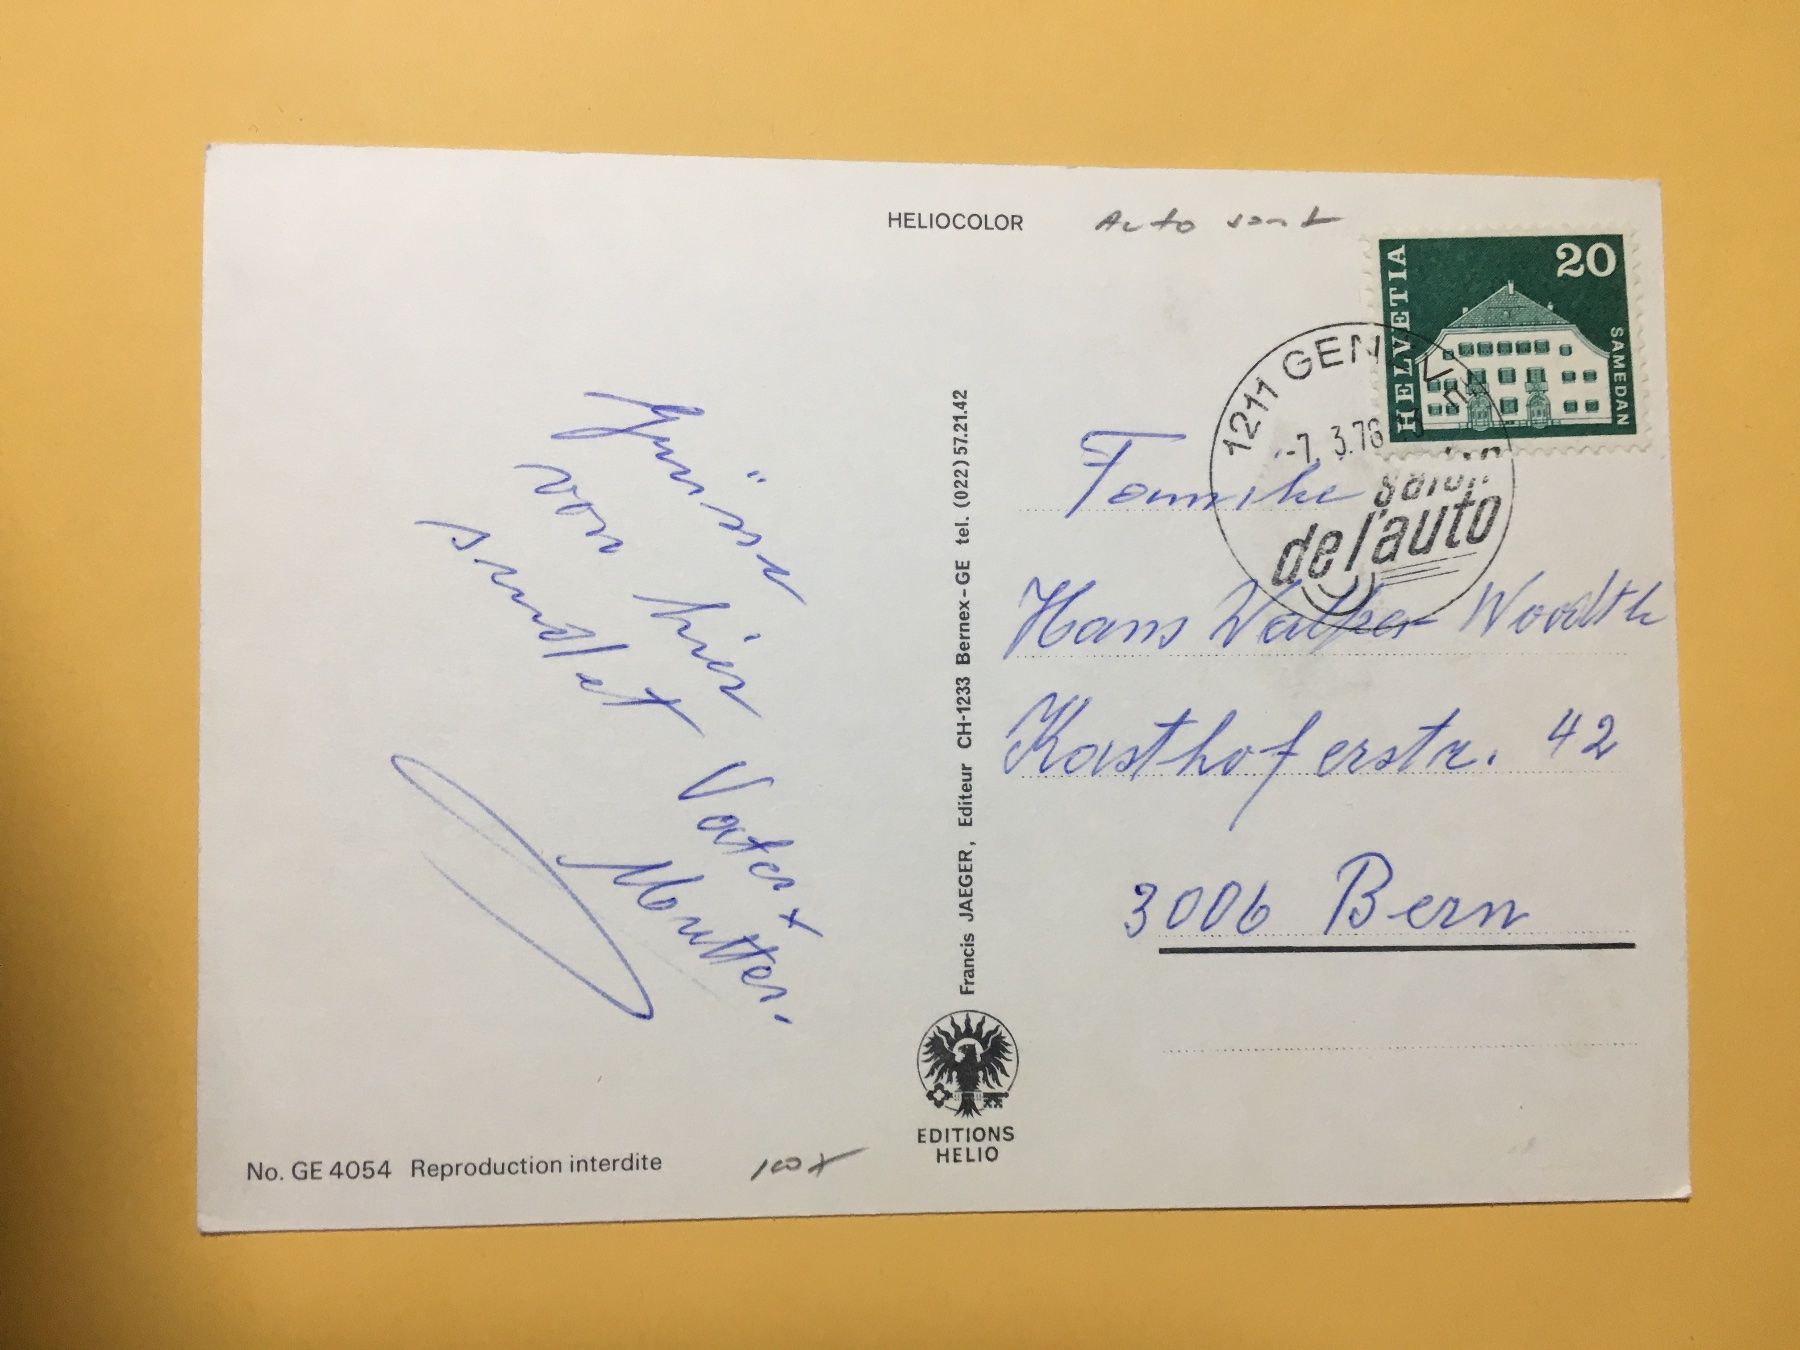 HELIOCOLOR
HELVETIA
20
SAMEDAN
1211 GENÈVE
-7. 3.76
salon
de l'auto
Grüsse
von hier
sendet Vater +
Mutter.
Hans Walter
Kasthoferstr. 42
3006 Bern
Francis JAEGER, Editeur CH-1233 Bernex-GE tel. (022) 57.21.42
EDITIONS
HELIO
No. GE 4054 Reproduction interdite